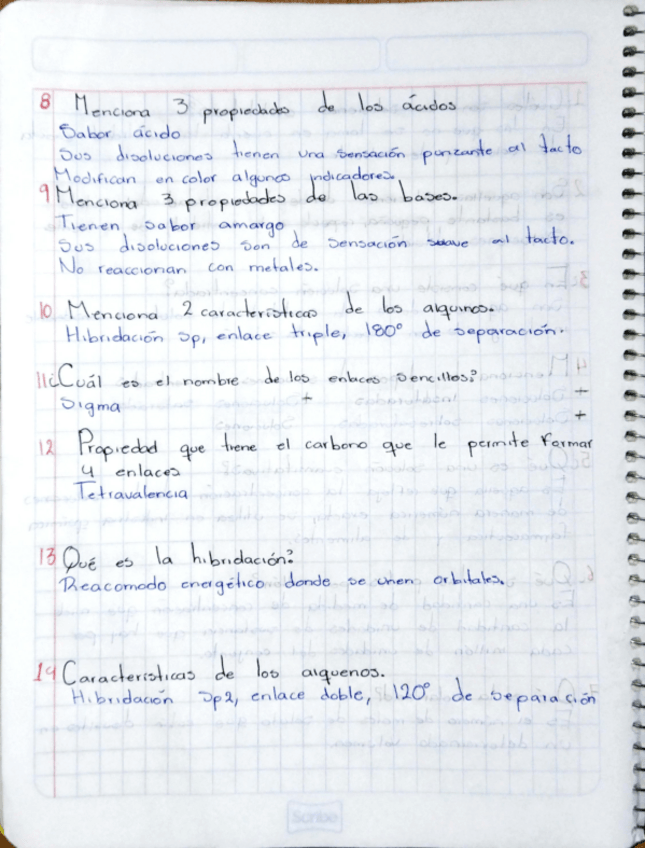 8 Menciona 3 propiedades de los ácidos
Sabor ácido
Sus disoluciones tienen una sensación punzante al tacto
Modifican en color algunos indicadores.
9 Menciona 3 propiedades de las bases.
Tienen sabor amargo
Sus disoluciones son de sensación suave al tacto.
No reaccionan con metales.
10 Menciona 2 características de los alquinos.
Hibridación sp, enlace triple, 180° de separación.
11 ¿Cuál es el nombre de los enlaces sencillos?
Sigma
12 Propiedad que tiene el carbono que le permite formar
4 enlaces
Tetravalencia
13 Qué es la hibridación?
Reacomodo energético donde se unen orbitales.
14 Características de los alquenos.
Hibridación sp2, enlace doble, 120° de separación
Scribe